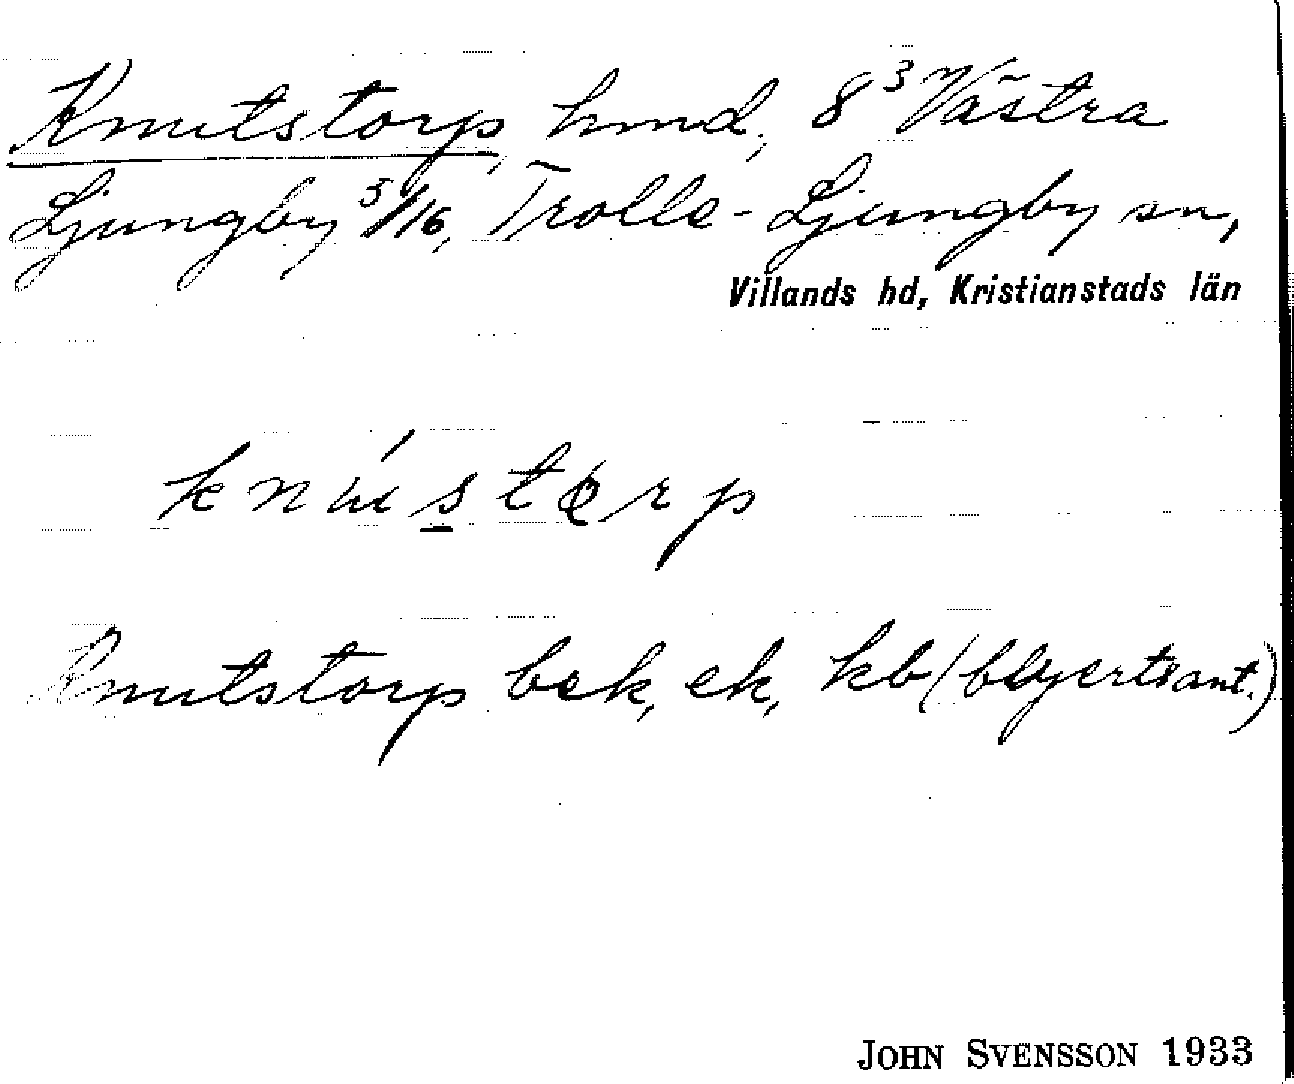 Knutstorp, hmd, 8³ Västra
Ljungby ³1/16, Trolle-Ljungby sn,
Villands hd, Kristianstads län
knústorp
Knutstorp bek, ek, kb (blyertsant.)
JOHN SVENSSON 1933